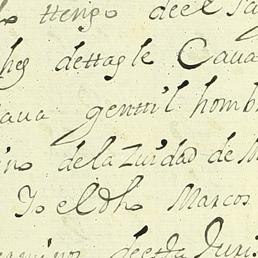 ttengo deel
dettagle Cava
genttil hombr
dela Zuidad de M
Y el dho Marcos
deesta Juris